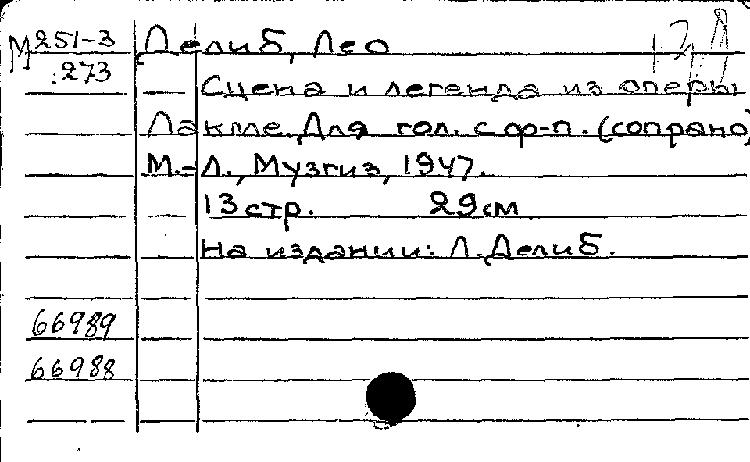 М 251-3 Делиб, Лео
:273
Сцена и легенда из оперы
Лакме. Для гол. с ф-п. (сопрано)
М.-Л., Музгиз, 1947.
13 стр. 29 см
На издании: Л. Делиб.
66989
66988